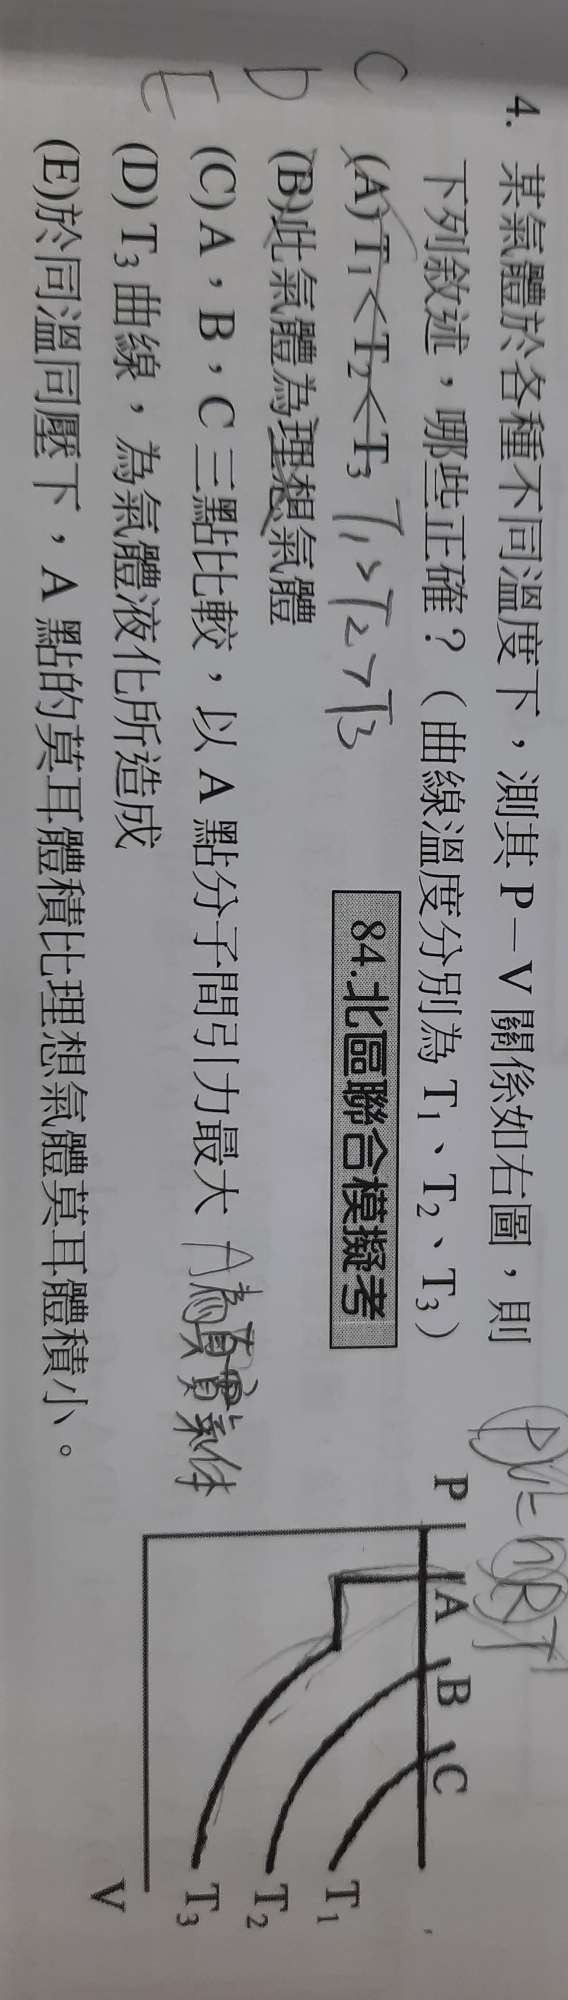 4. 某氣體於各種不同溫度下，測其 P－V 關係如右圖，則
下列敘述，哪些正確？（曲線溫度分別為 T₁、T₂、T₃）
84.北區聯合模擬考
C
D
E
(A) T₁＜T₂＜T₃ T₁>T₂>T₃
(B)此氣體為理想氣體
(C) A，B，C 三點比較，以 A 點分子間引力最大 A為真實氣体
(D) T₃ 曲線，為氣體液化所造成
(E)於同溫同壓下，A 點的莫耳體積比理想氣體莫耳體積小。
PV=nRT
P
A B C
T₁
T₂
T₃
V